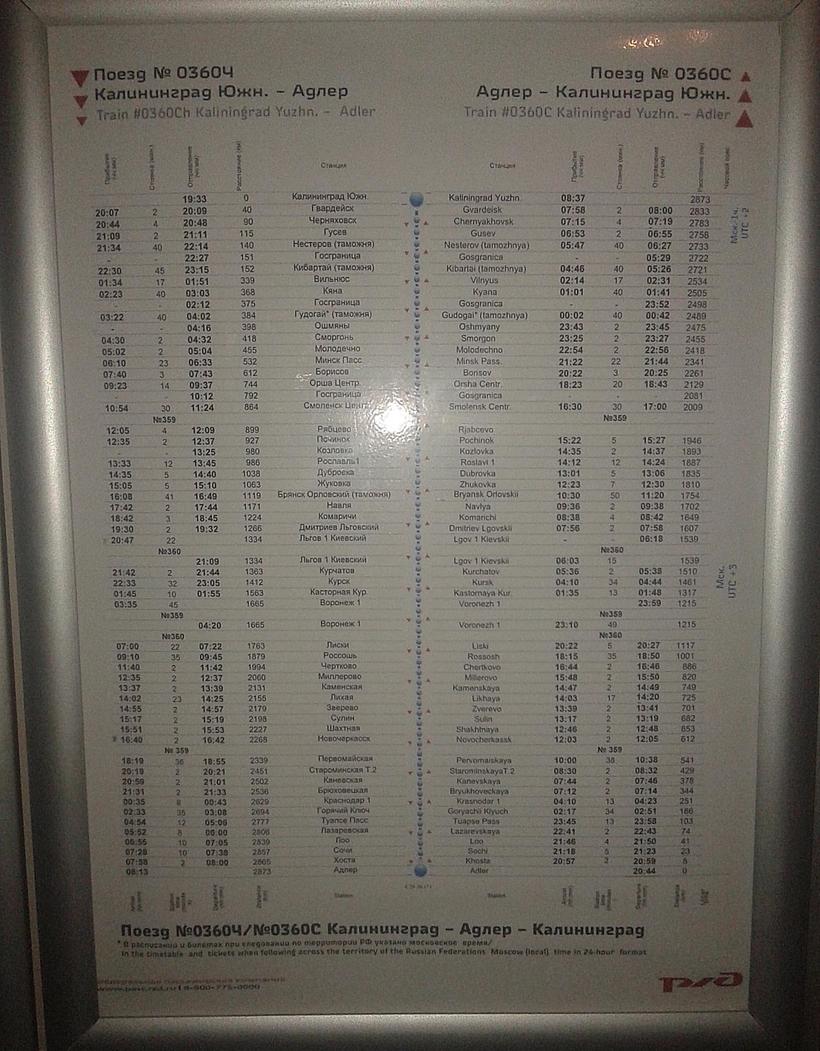 Поезд № 0360Ч
Калининград Южн. – Адлер
Train #0360Ch Kaliningrad Yuzhn. – Adler
Поезд № 0360С
Адлер – Калининград Южн.
Train #0360C Kaliningrad Yuzhn. – Adler
Прибытие Стоянка (мин.) Отправление Расстояние (км) Станция Станция Прибытие Стоянка (мин.) Отправление Расстояние (км) Часовой пояс
19:33 0 Калининград Южн. Kaliningrad Yuzhn. 08:37 2873
20:07 2 20:09 40 Гвардейск Gvardeisk 07:58 2 08:00 2833
20:44 4 20:48 90 Черняховск Chernyakhovsk 07:15 4 07:19 2783
21:09 2 21:11 115 Гусев Gusev 06:53 2 06:55 2758
21:34 40 22:14 140 Нестеров (таможня) Nesterov (tamozhnya) 05:47 40 06:27 2733
- - 22:27 151 Госграница Gosgranica - - 05:29 2722
22:30 45 23:15 152 Кибартай (таможня) Kibartai (tamozhnya) 04:46 40 05:26 2721
01:34 17 01:51 339 Вильнюс Vilnyus 02:14 17 02:31 2534
02:23 40 03:03 368 Кяна Kyana 01:01 40 01:41 2505
- - 02:12 375 Госграница Gosgranica - - 23:52 2498
03:22 40 04:02 384 Гудогай* (таможня) Gudogai* (tamozhnya) 00:02 40 00:42 2489
- - 04:16 398 Ошмяны Oshmyany 23:43 2 23:45 2475
04:30 2 04:32 418 Сморгонь Smorgon 23:25 2 23:27 2455
05:02 2 05:04 455 Молодечно Molodechno 22:54 2 22:56 2418
06:10 23 06:33 532 Минск Пасс. Minsk Pass. 21:22 22 21:44 2341
07:40 3 07:43 612 Борисов Borisov 20:22 3 20:25 2261
09:23 14 09:37 744 Орша Центр. Orsha Centr. 18:23 20 18:43 2129
- - 10:12 792 Госграница Gosgranica - - 2081
10:54 30 11:24 864 Смоленск Центр. Smolensk Centr. 16:30 30 17:00 2009
№359 №359
12:05 4 12:09 899 Рябцево Rjabcevo
12:35 2 12:37 927 Починок Pochinok 15:22 5 15:27 1946
- - 13:25 980 Козловка Kozlovka 14:35 2 14:37 1893
13:33 12 13:45 986 Рославль1 Roslavl 1 14:12 12 14:24 1887
14:35 5 14:40 1038 Дубровка Dubrovka 13:01 5 13:06 1835
15:05 5 15:10 1063 Жуковка Zhukovka 12:23 7 12:30 1810
16:08 41 16:49 1119 Брянск Орловский (таможня) Bryansk Orlovskii 10:30 50 11:20 1754
17:42 2 17:44 1171 Навля Navlya 09:36 2 09:38 1702
18:42 3 18:45 1224 Комаричи Komarichi 08:38 4 08:42 1649
19:30 2 19:32 1266 Дмитриев Льговский Dmitriev Lgovskii 07:56 2 07:58 1607
20:47 22 1334 Льгов 1 Киевский Lgov 1 Kievskii - - 06:18 1539
№360 №360
21:09 1334 Льгов 1 Киевский Lgov 1 Kievskii 06:03 15 1539
21:42 2 21:44 1363 Курчатов Kurchatov 05:36 2 05:38 1510
22:33 32 23:05 1412 Курск Kursk 04:10 34 04:44 1461
01:45 10 01:55 1563 Касторная Кур. Kastornaya Kur. 01:35 13 01:48 1317
03:35 45 1665 Воронеж 1 Voronezh 1 23:59 1215
№359 №359
04:20 1665 Воронеж 1 Voronezh 1 23:10 49 1215
№360 №360
07:00 22 07:22 1763 Лиски Liski 20:22 5 20:27 1117
09:10 35 09:45 1879 Россошь Rossosh 18:15 35 18:50 1001
11:40 2 11:42 1994 Чертково Chertkovo 16:44 2 16:46 886
12:35 2 12:37 2060 Миллерово Millerovo 15:48 2 15:50 820
13:37 2 13:39 2131 Каменская Kamenskaya 14:47 2 14:49 749
14:02 23 14:25 2155 Лихая Likhaya 14:03 17 14:20 725
14:55 2 14:57 2179 Зверево Zverevo 13:39 2 13:41 701
15:17 2 15:19 2198 Сулин Sulin 13:17 2 13:19 682
15:51 2 15:53 2227 Шахтная Shakhtnaya 12:46 2 12:48 653
16:40 2 16:42 2268 Новочеркасск Novocherkassk 12:03 2 12:05 612
№ 359 № 359
18:19 36 18:55 2339 Первомайская Pervomaiskaya 10:00 38 10:38 541
20:19 2 20:21 2451 Староминская Т.2 StarominskayaT.2 08:30 2 08:32 429
20:59 2 21:01 2502 Каневская Kanevskaya 07:44 2 07:46 378
21:31 2 21:33 2536 Брюховецкая Bryukhoveckaya 07:12 2 07:14 344
00:35 8 00:43 2629 Краснодар 1 Krasnodar 1 04:10 13 04:23 251
02:33 35 03:08 2694 Горячий Ключ Goryachii Klyuch 02:17 34 02:51 186
04:54 12 05:06 2777 Туапсе Пасс Tuapse Pass 23:45 13 23:58 103
05:52 8 06:00 2806 Лазаревская Lazarevskaya 22:41 2 22:43 74
06:55 10 07:05 2839 Лоо Loo 21:46 4 21:50 41
07:28 10 07:38 2857 Сочи Sochi 21:18 5 21:23 23
07:58 2 08:00 2865 Хоста Khosta 20:57 2 20:59 8
08:13 2873 Адлер Adler 20:44 0
Мск.-1ч.
UTC +2
Мск.
UTC +3
Station Station
Поезд №0360Ч/№0360С Калининград – Адлер – Калининград
* В расписании и билетах при следовании по территории РФ указано московское время/
In the timetable and tickets when following across the territory of the Russian Federations Moscow (local) time in 24-hour format
8-800-775-0000
РЖД